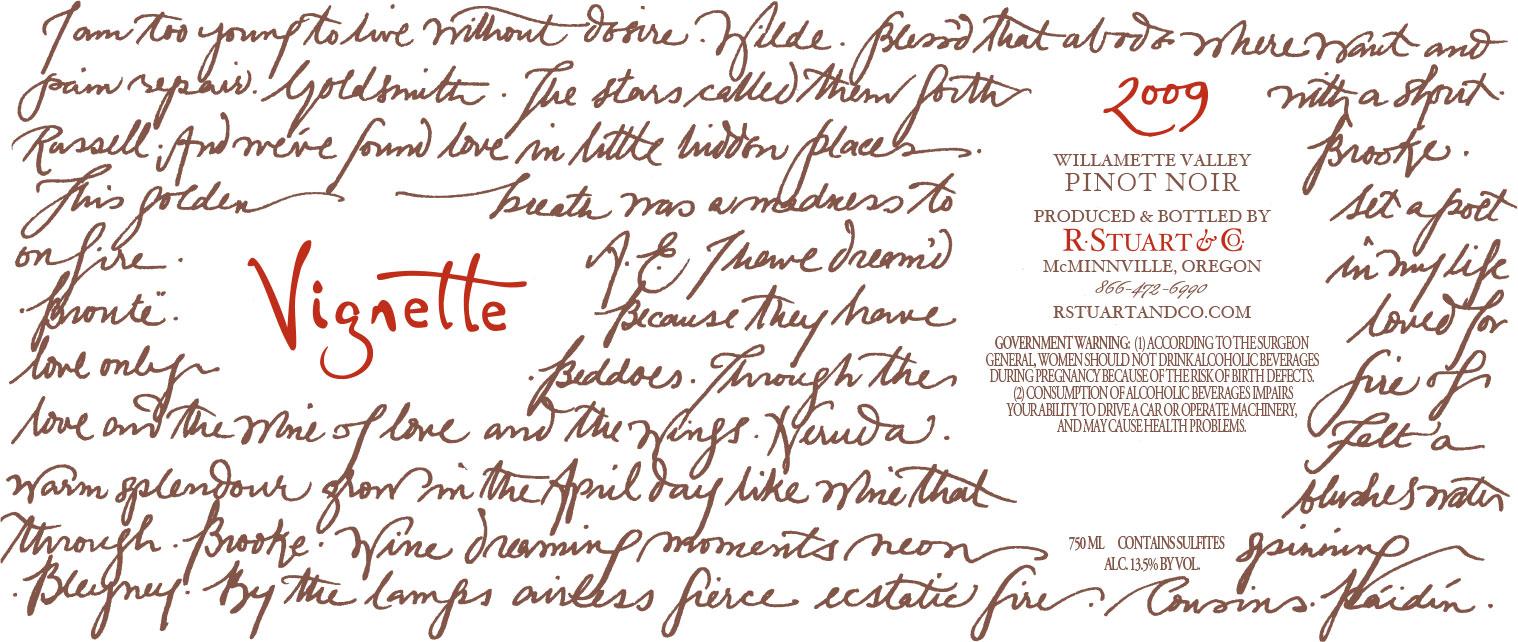 I am too young to live without desire. Wilde. Bless'd that abode where want and
pain repair. Goldsmith. The stars called them forth with a shout.
Russell. And we've found love in little hidden places. Brooke.
This golden breath was a madness to set a poet
on fire. A. E. I have dream'd in my life
Brontë. Because they have loved for
love only. Beddoes. Through the fire of
love and the wine of love and the wings. Neruda. Felt a
warm splendour grow in the April day like wine that blushes water
through. Brooke. Wine dreaming moments neon spinning
Bleigney. By the lamps airless fierce ecstatic fire. Cousins. Páidín.
Vignette
2009
WILLAMETTE VALLEY
PINOT NOIR
PRODUCED & BOTTLED BY
R·STUART & CO.
McMINNVILLE, OREGON
866-472-6990
RSTUARTANDCO.COM
GOVERNMENT WARNING: (1) ACCORDING TO THE SURGEON
GENERAL, WOMEN SHOULD NOT DRINK ALCOHOLIC BEVERAGES
DURING PREGNANCY BECAUSE OF THE RISK OF BIRTH DEFECTS.
(2) CONSUMPTION OF ALCOHOLIC BEVERAGES IMPAIRS
YOUR ABILITY TO DRIVE A CAR OR OPERATE MACHINERY,
AND MAY CAUSE HEALTH PROBLEMS.
750 ML CONTAINS SULFITES
ALC. 13.5% BY VOL.